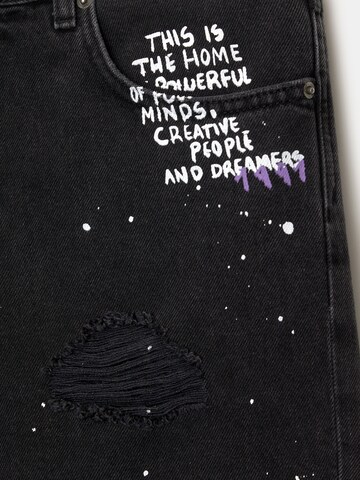 THIS IS
THE HOME
OF POWERFUL
MINDS.
CREATIVE
PEOPLE
AND DREAMERS
1991